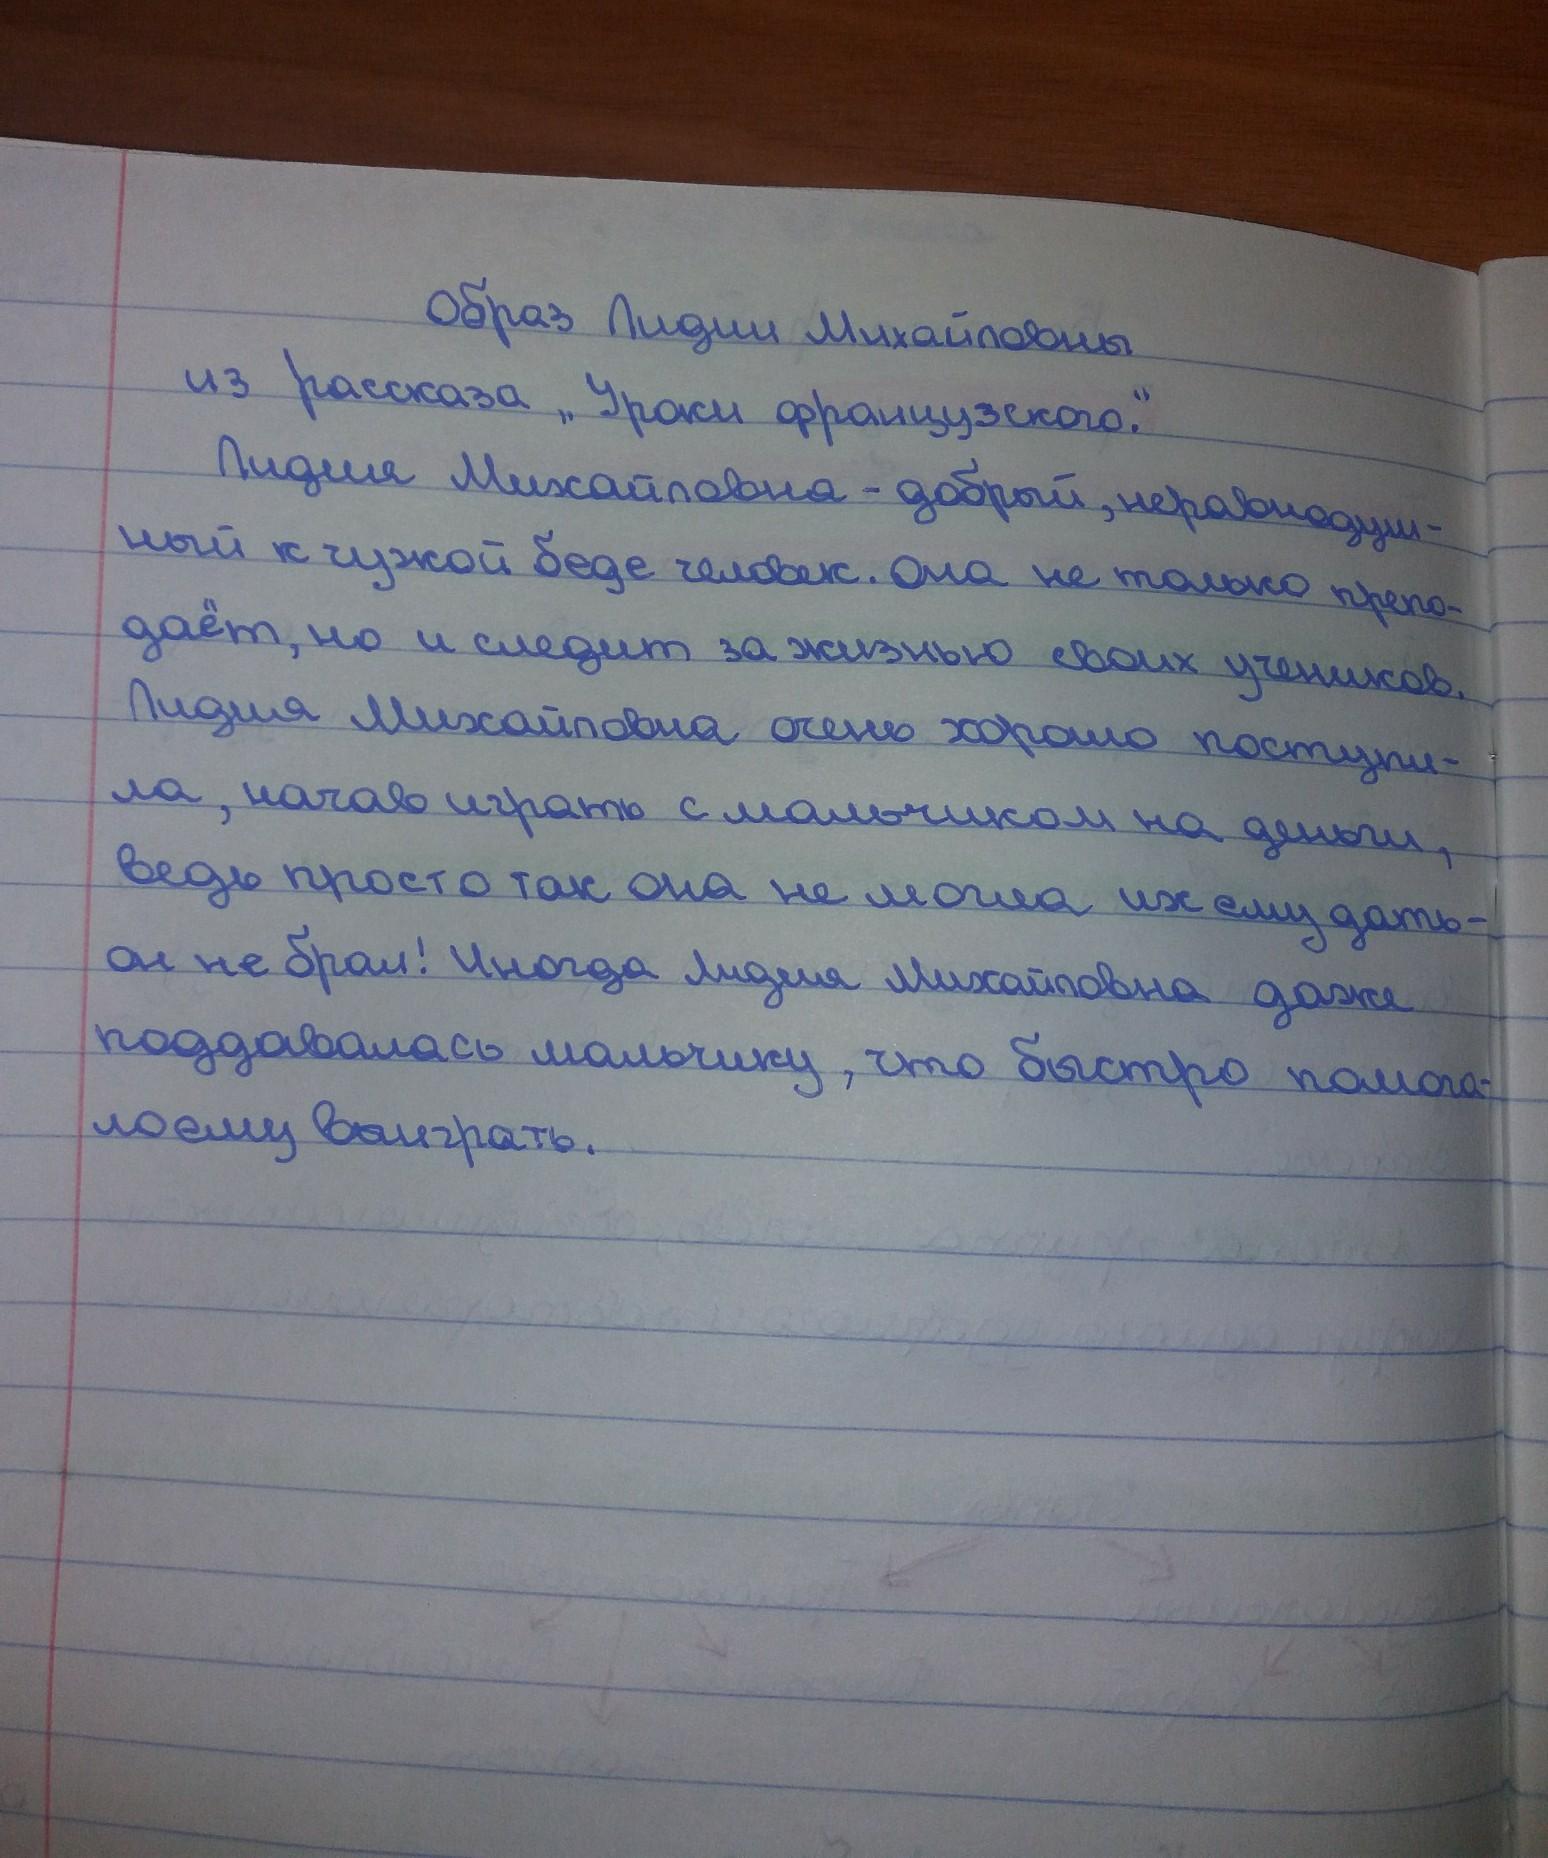 Образ Лидии Михайловны
из рассказа „Уроки французского."
Лидия Михайловна - добрый, неравнодуш-
ный к чужой беде человек. Она не только препо-
даёт, но и следит за жизнью своих учеников.
Лидия Михайловна очень хорошо поступи-
ла, начав играть с мальчиком на деньги,
ведь просто так она не могла их ему дать-
он не брал! Иногда Лидия Михайловна даже
поддавалась мальчику, что быстро помога-
ло ему выиграть.